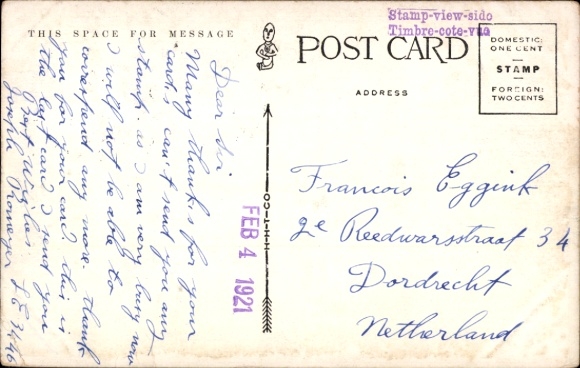 THIS SPACE FOR MESSAGE
Dear Sir
Many thanks for your
card, can't send you any
stamps as I am very busy now
I will not be able to
correspond any more. thank
you for your card. this is
the last card I send you
Best Wishes
Joseph
LE 3146
H-H-T-CO
FEB 4 1921
POST CARD
ADDRESS
Stamp-view-sido
Timbre-cote-vue
DOMESTIC:
ONE CENT
STAMP
FOREIGN:
TWO CENTS
Francois Eggink
2e Reedwarsstraat 34
Dordrecht
Netherland